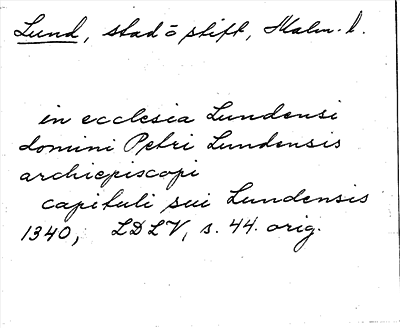 Lund, stad o stift, Malm. l.
in ecclesia Lundensi
domini Petri Lundensis
archiepiscopi
capituli sui Lundensis
1340, LDLV, s. 44. orig.